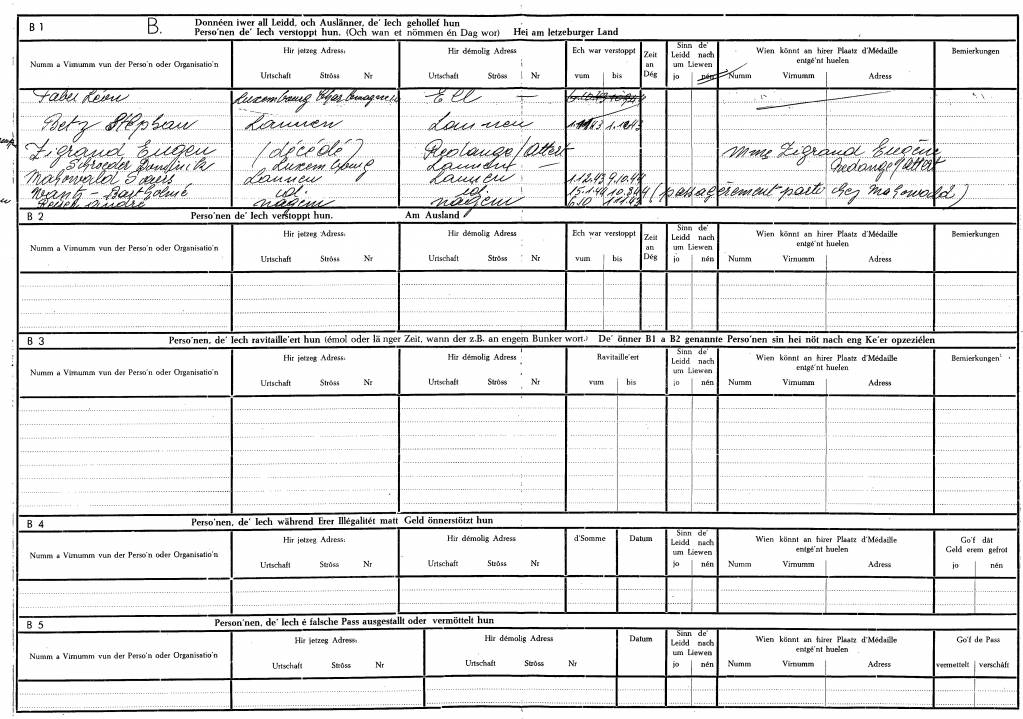 B 1 B. Donnéen iwer all Leidd, och Auslänner, de' Iech gehollef hun
Perso'nen de' Iech verstoppt hun. (Och wan et nömmen én Dag wor) Hei am letzeburger Land
Numm a Virnumm vun der Perso'n oder Organisatio'n
Hir jetzeg Adress: Hir démolig Adress Ech war verstoppt Zeit an Dég Sinn de' Leidd nach um Liewen Wien könnt an hirer Plaatz d'Médaille entgé'nt huelen Bemierkungen
Urtschaft Ströss Nr Urtschaft Ströss Nr vum bis jo nén Numm Virnumm Adress
Faber Léon Luxembourg Ell —
Betz Stephan Lannen Lannen 1.10.43
Zigrand Eugen (décédé) Redange/Attert Mme Zigrand Eugène
Schroeder Dominik Luxembourg Lannen Redange/Attert
Majowald Lannen Lannen 1.12.43 9.10.44
Wantz - Barthelmé id. id. 15.1.44 (passagèrement parti chez Majowald)
André Nagem Nagem 6.10 1.11.43
B 2 Perso'nen de' Iech verstoppt hun. Am Ausland
Numm a Virnumm vun der Perso'n oder Organisatio'n
Hir jetzeg Adress: Hir démolig Adress Ech war verstoppt Zeit an Dég Sinn de' Leidd nach um Liewen Wien könnt an hirer Plaatz d'Médaille entgé'nt huelen Bemierkungen
Urtschaft Ströss Nr Urtschaft Ströss Nr vum bis jo nén Numm Virnumm Adress
B 3 Perso'nen, de' Iech ravitaille'ert hun (émol oder länger Zeit, wann der z.B. an engem Bunker wort.) De' önner B1 a B2 genannte Perso'nen sin hei nöt nach eng Ke'er opzeziélen
Numm a Virnumm vun der Perso'n oder Organisatio'n
Hir jetzeg Adress: Hir démolig Adress Ravitaille'ert Sinn de' Leidd nach um Liewen Wien könnt an hirer Plaatz d'Médaille entgé'nt huelen Bemierkungen
Urtschaft Ströss Nr Urtschaft Ströss Nr vum bis jo nén Numm Virnumm Adress
B 4 Perso'nen, de' Iech während Erer Illégalitét matt Geld önnerstötzt hun
Numm a Virnumm vun der Perso'n oder Organisatio'n
Hir jetzeg Adress: Hir démolig Adress d'Somme Datum Sinn de' Leidd nach um Liewen Wien könnt an hirer Plaatz d'Médaille entgé'nt huelen Go'f dât Geld erem gefrot
Urtschaft Ströss Nr Urtschaft Ströss Nr jo nén Numm Virnumm Adress jo nén
B 5 Person'nen, de' Iech é falsche Pass ausgestallt oder vermöttelt hun
Numm a Virnumm vun der Perso'n oder Organisatio'n
Hir jetzeg Adress: Hir démolig Adress Datum Sinn de' Leidd nach um Liewen Wien könnt an hirer Plaatz d'Médaille entgé'nt huelen Go'f de Pass
Urtschaft Ströss Nr Urtschaft Ströss Nr jo nén Numm Virnumm Adress vermettelt verschâft